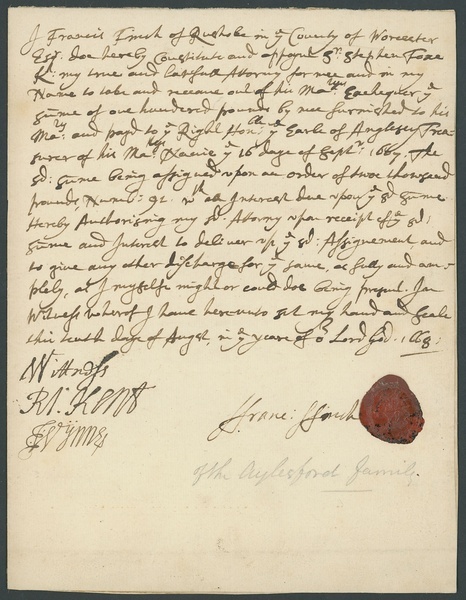 I Francis Finch of Rushoke in yͤ County of Worcester
Esqʳ. doe hereby Constitute and appoynt Sʳ. Stephen Foxe
Kᵗ: my true and lawfull Attorny for mee and in my
Name to take and receave out of his Maᵗⁱᵉˢ Exchequer yͤ
summe of one hundered pounds by mee furnished to his
Maᵗʸ: and payd to yͤ Right Honᵇˡᵉ yͤ Earle of Anglesey Trea-
surer of his Maᵗⁱᵉˢ Navie yͤ 16 day of Septʳ. 1667. The
sd: summe being assigned upon an order of two thousand
pounds, Numbʳ: 91. wᵗʰ all Interest due upon yͤ sd summe
Hereby Authorising my sd. Attorny upon receipt of yͤ sd:
summe and Interest to deliver up yͤ sd: Assignement, and
to give any other discharge for yͤ same, as fully and am-
plely, as I myselfe might or could doe being present. In
Witness whereof I have hereunto set my hand and seale
this tenth day of Augst, in yͤ yeare of oʳ Lord God. 1668:
Wittness
Rt: Kent
E Wynne
ffranc: ffinch
of the Aylesford Family.